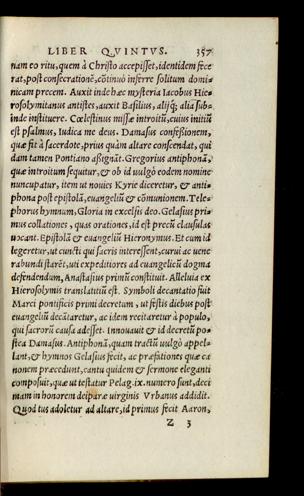 LIBER QVINTVS. 357
nam eo ritu, quem à Christo accepisset, identidem fece
rat, post consecrationẽ, cõtinuò inferre solitum domi-
nicam precem. Auxit inde hæc mysteria Iacobus Hie-
rosolymitanus antistes, auxit Basilius, alijq́; alia sub-
inde instituere. Cœlestinus missæ introitũ, cuius initiũ
est psalmus, Iudica me deus. Damasus confeßionem,
quæ fit à sacerdote, prius quàm altare conscendat, qui
dam tamen Pontiano aßignãt. Gregorius antiphonã,
quæ introitum sequitur, & ob id uulgò eodem nomine
nuncupatur, item ut nouies Kyrie diceretur, & anti-
phona post epistolã, euangeliũ & cõmunionem. Tele-
phorus hymnum, Gloria in excelsis deo. Gelasius pri-
mus collationes, quas orationes, id est precũ clausulas
uocant. Epistolã & euangeliũ Hieronymus. Et cum id
legeretur, ut cuncti qui sacris interessent, curui ac uene
rabundi starẽt, uti expeditiores ad euangelicũ dogma
defendendum, Anastasius primũ constituit. Alleluia ex
Hierosolymis translatitiũ est. Symboli decantatio fuit
Marci pontificis primi decretum, ut festis diebus post
euangeliũ decãtaretur, ac idem recitaretur à populo,
qui sacrorũ causa adesset. Innouauit & id decretũ po-
stea Damasus. Antiphonã, quam tractũ uulgò appel-
lant, & hymnos Gelasius fecit, ac præfationes quæ ca
nonem præcedunt, cantu quidem & sermone eleganti
composuit, quæ ut testatur Pelag. ix. numero sunt, deci
mam in honorem deiparæ uirginis Vrbanus addidit.
Quod tus adoletur ad altare, id primus fecit Aaron,
Z 3